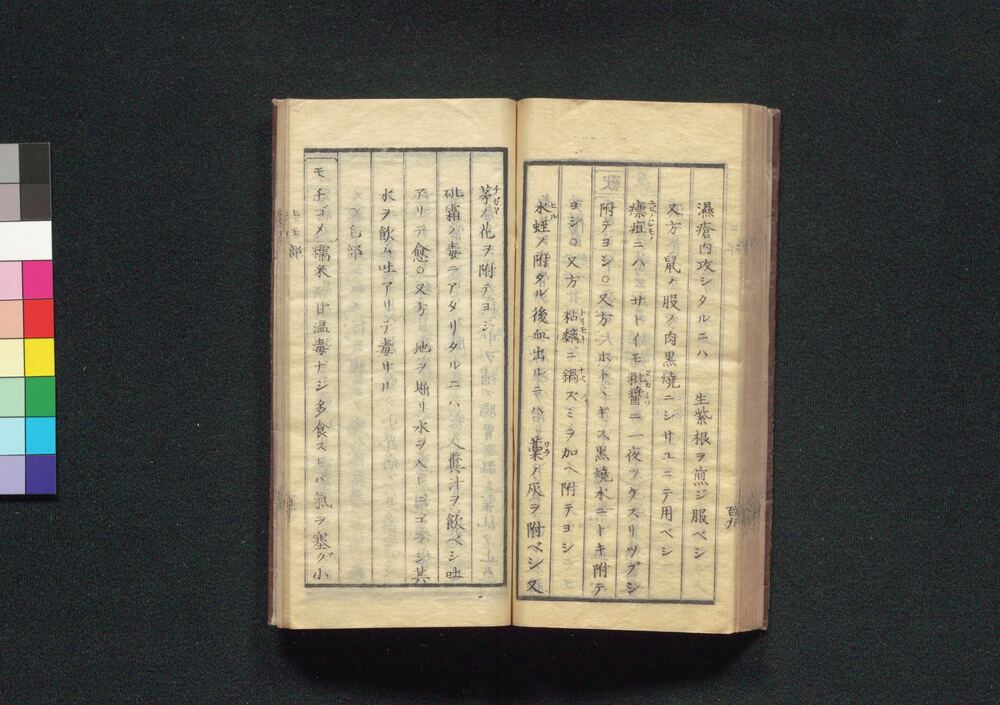 濕瘡内攻シタルニハ 生紫根ヲ煎ジ服ベシ
又方 鼠ノ股ノ肉黒燒ニシサユニテ用ベシ
瘭疽ニハ サトイモ 糀醬ニ一夜ツケスリツブシ
附テヨシ○又方 ホトヽギス黒燒水ニトキ附テ
ヨシ○又方 粘黐ニ鍋ズミヲ加ヘ附テヨシ
水蛭ノ附タル後血出ルニハ 藁ノ灰ヲ附ベシ又
茅ノ花ヲ附テヨシ
砒霜ノ毒ニアタリタルニハ 人糞汁ヲ飲ベシ吐
アリテ愈○又方 地ヲ堀リ水ヲ入レ 其
水ヲ飲ム吐アリテ毒サル
モ 部
モチゴメ 糯米 甘温毒ナシ多食スレバ氣ヲ塞グ小